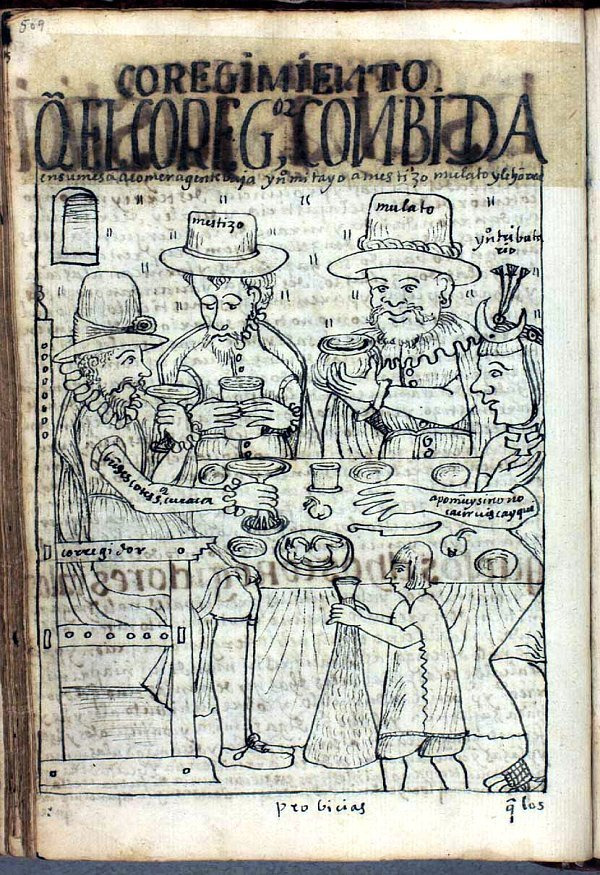 509
COREGIMIENTO
Q̃ EL COREG,OR COMBIDA
en su mesa a comer a gente baja yn̊ mitayo a mestizo mulato y le
mestizo
mulato
yn̊ tributa
rio
s. curaca
apo muy sinor no
ca ciruiscayqui
corregidor
probicias
q̃ los